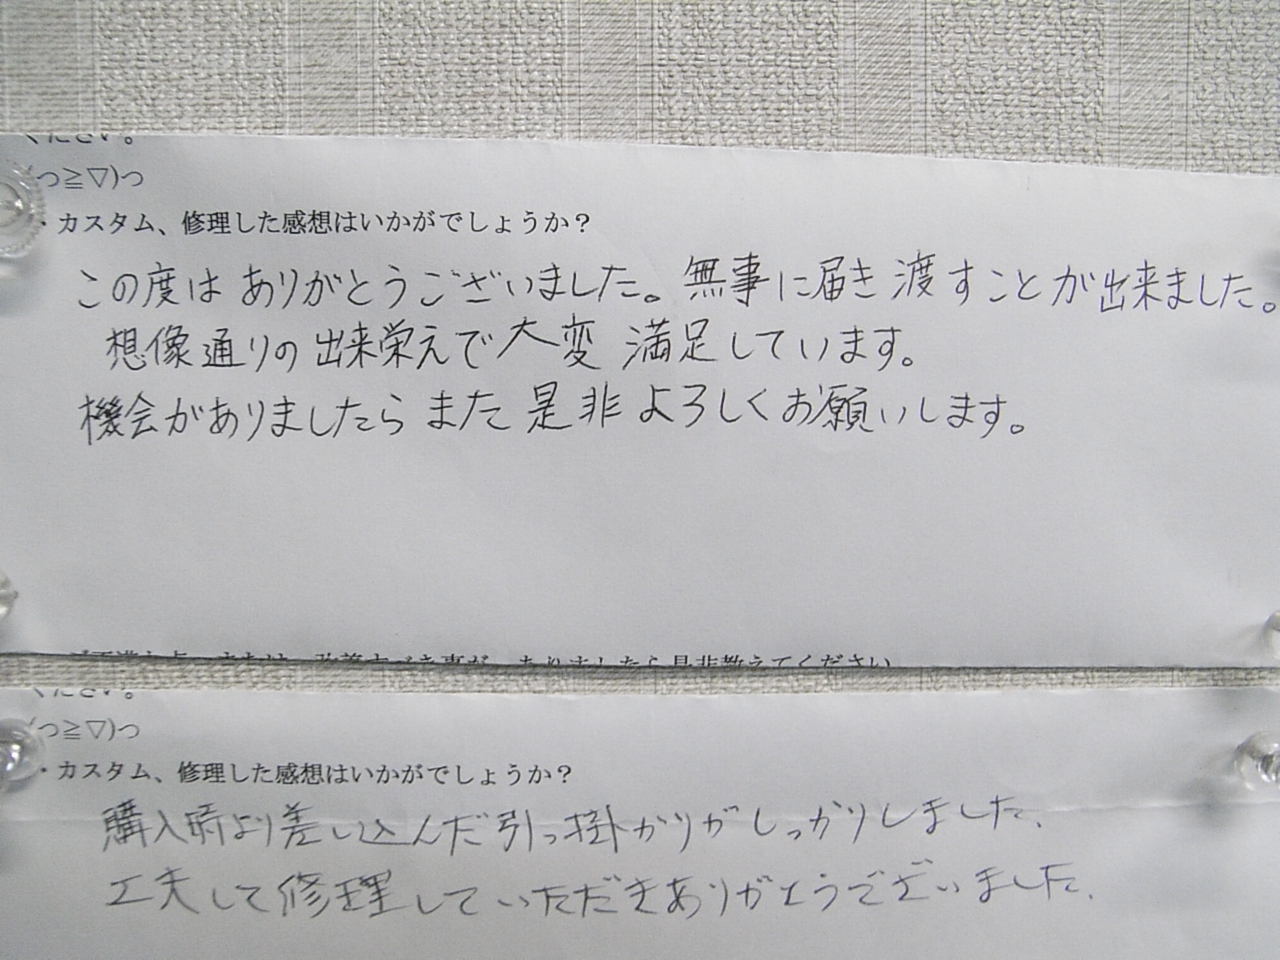 ください。
(つ≧▽)つ
・カスタム、修理した感想はいかがでしょうか？
この度はありがとうございました。無事に届き渡すことが出来ました。
想像通りの出来栄えで大変満足しています。
機会がありましたらまた是非よろしくお願いします。
ください。
(つ≧▽)つ
・カスタム、修理した感想はいかがでしょうか？
購入時より差し込んだ引っ掛かりがしっかりしました、
工夫して修理していただきありがとうございました、